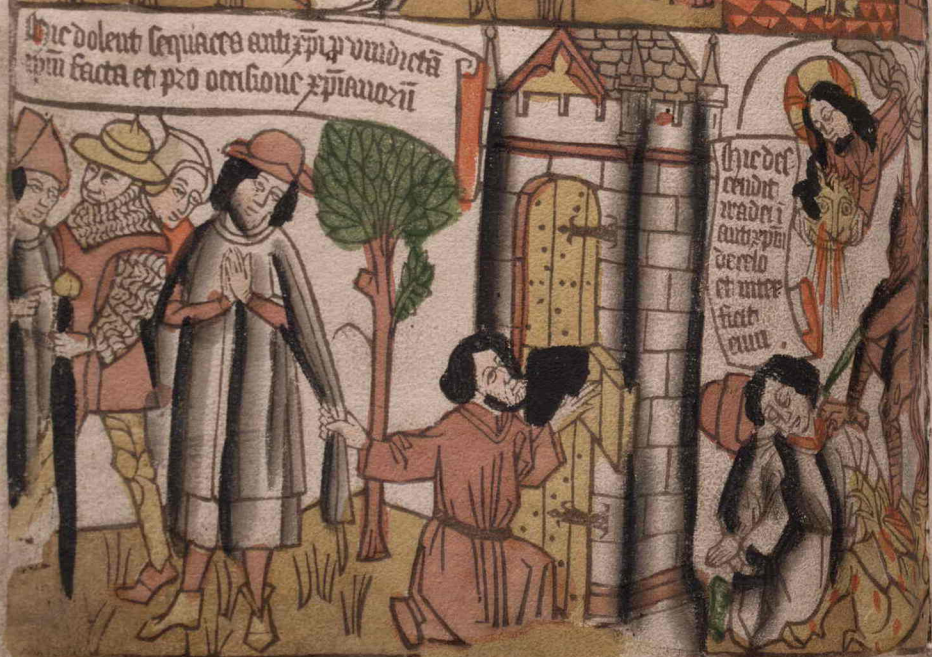 Hic dolent sequacea antixp̄i p vindictā
ip̄m facta et pro occisione xp̄ianorū
Hic des
cendit
ira dei ī
antixp̄m
de celo
et inter
ficit
eum.